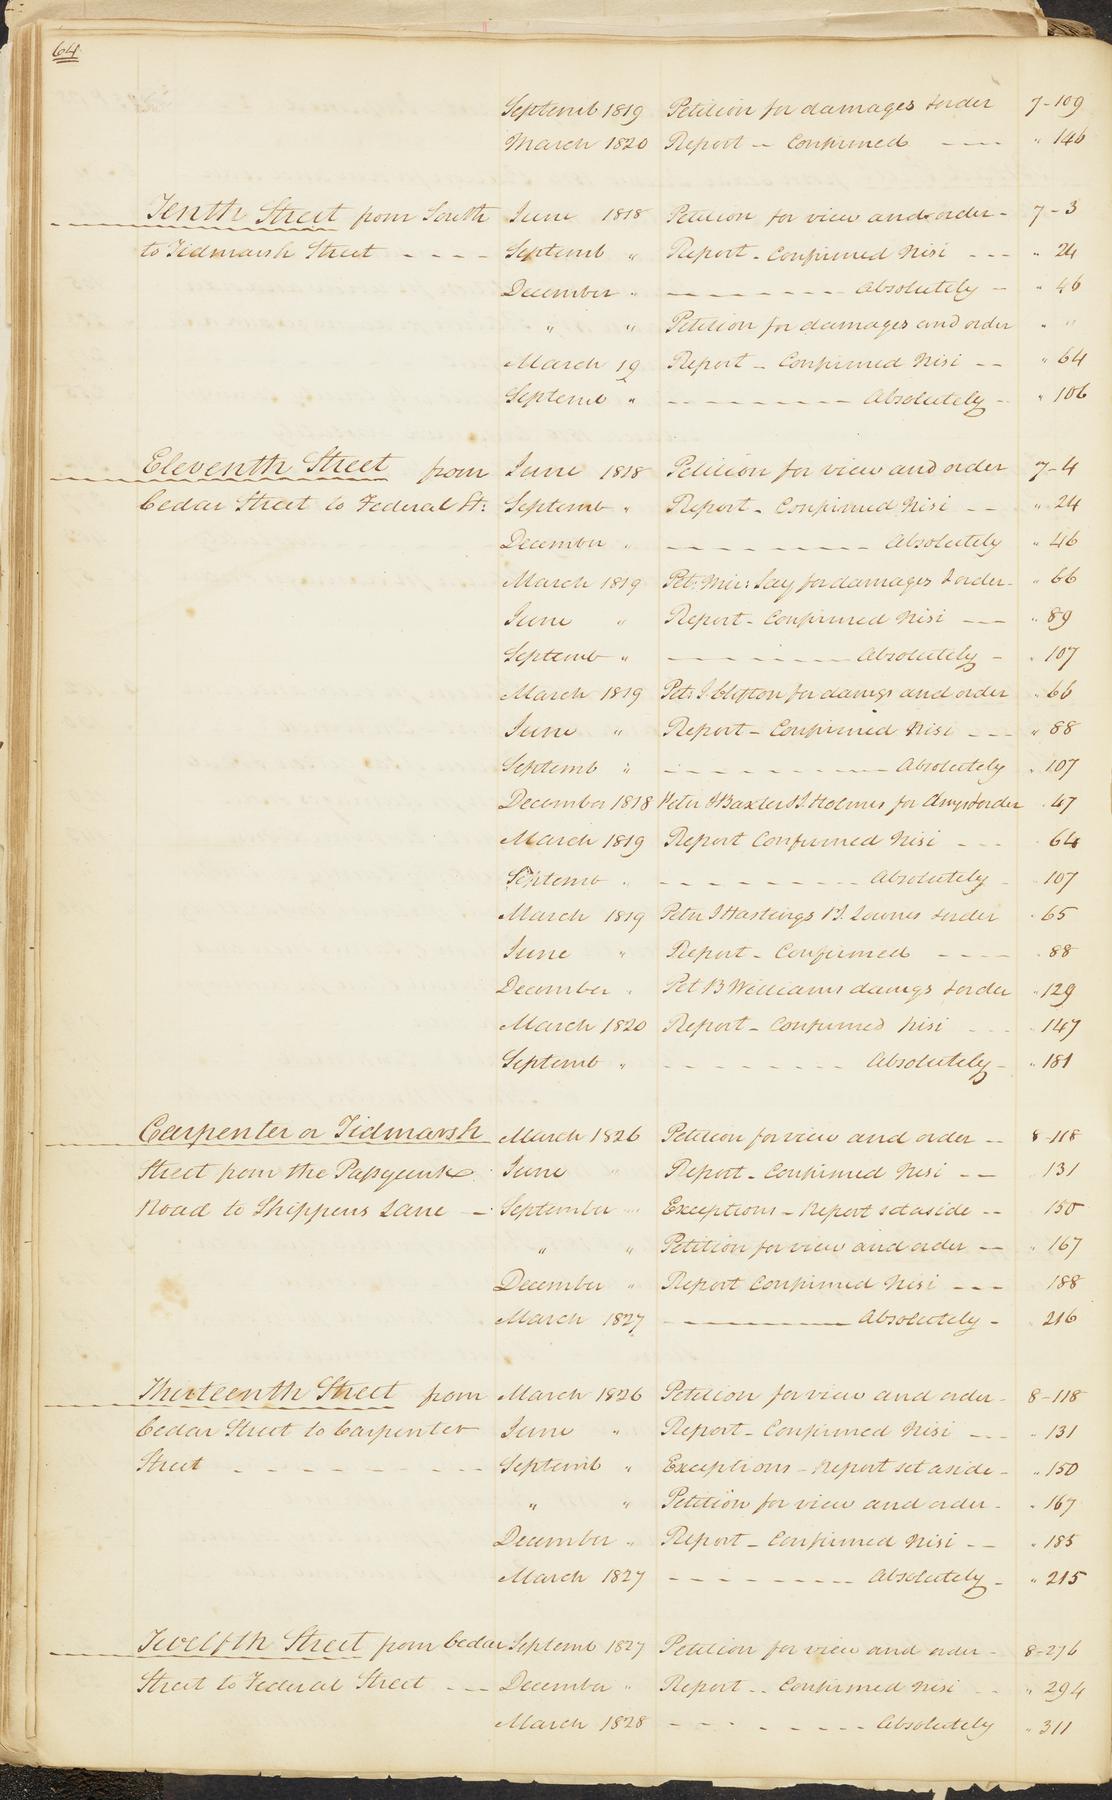 64
Septemb 1819 Petition for damages & order 7-109
March 1820 Report -- Confirmed ---- " 146
Tenth Street from South June 1818 Petition for view and order- 7-3
to Tidmarsh Street - - - - Septemb " Report - Confirmed Nisi --- " 24
December " --------- Absolutely -- " 46
" " Petition for damages and order " "
March 19 Report - Confirmed Nisi -- " 64
Septemb " --------- Absolutely - " 106
Eleventh Street from June 1818 Petition for view and order 7-4
Cedar Street to Federal St: Septemb " Report - Confirmed Nisi -- " 24
December " --------- Absolutely " 46
March 1819 Pet: Say for damages & order- " 66
June " Report - Confirmed Nisi --- " 89
Septemb " --------- Absolutely - " 107
March 1819 Pet: J Clifton for damgs and order " 66
June " Report - Confirmed Nisi --- " 88
Septemb " --------- Absolutely " 107
December 1818 Baxter & J. Holmes for & order " 47
March 1819 Report Confirmed Nisi --- " 64
Septemb " --------- Absolutely - " 107
March 1819 J Hastings & J. Lownes & order " 65
June " Report - Confirmed ---- " 88
December " Pet B Williams damgs & order " 129
March 1820 Report - Confirmed Nisi --- " 147
Septemb " --------- Absolutely - " 181
Carpenter or Tidmarsh March 1826 Petition for view and order -- 8-118
Street from the Passyunk June " Report - Confirmed Nisi -- " 131
Road to Shippens Lane -- September " Exceptions - Report set aside -- 150
" " Petition for view and order -- " 167
December " Report Confirmed Nisi --- 188
March 1827 --------- Absolutely - 216
Thirteenth Street from March 1826 Petition for view and order - 8-118
Cedar Street to Carpenter June " Report - Confirmed Nisi --- " 131
Street - - - - - - - - Septemb " Exceptions - Report set aside - " 150
" " Petition for view and order - " 167
December " Report - Confirmed Nisi -- " 185
March 1827 --------- Absolutely - " 215
Twelfth Street from Cedar Septemb 1827 Petition for view and order - 8-276
Street to Federal Street --- December " Report -- Confirmed Nisi -- " 294
March 1828 --------- Absolutely " 311